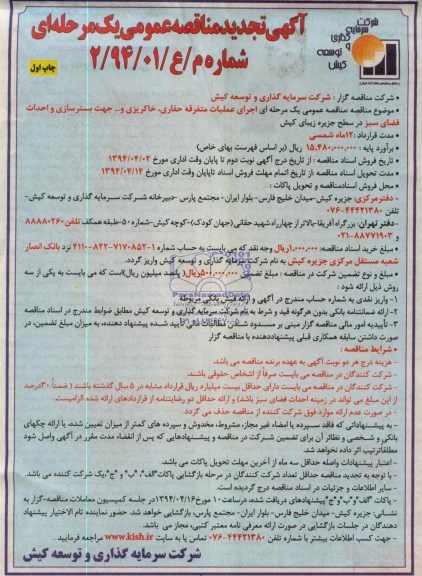 شرکت
سرمایه
گذاری
و توسعه
کیش
آگهی تجدید مناقصه عمومی یک مرحله‌ای
شماره م/ع/۲/۹۴/۰۱
چاپ اول
• شرکت مناقصه گزار: شرکت سرمایه گذاری و توسعه کیش
• موضوع مناقصه: مناقصه عمومی یک مرحله ای اجرای عملیات متفرقه حفاری، خاکریزی و... جهت بسترسازی و احداث
فضای سبز در سطح جزیره زیبای کیش
• مدت قرارداد: ۱۲ماه شمسی
• برآورد پایه: ۱۵,۴۸۰,۰۰۰,۰۰۰ ریال (بر اساس فهرست بهای خاص)
• تاریخ فروش اسناد مناقصه: از تاریخ درج آگهی نوبت دوم تا پایان وقت اداری مورخ ۱۳۹۴/۰۴/۰۲
• مدت تحویل اسناد مناقصه: از تاریخ اتمام مهلت فروش اسناد تاپایان وقت اداری مورخ ۱۳۹۴/۰۴/۱۴
• محل فروش اسنادمناقصه و تحویل پاکات:
- دفترمرکزی: جزیره کیش-میدان خلیج فارس-بلوار ایران-مجتمع پارس-دبیرخانه شرکت سرمایه گذاری و توسعه کیش-
تلفن ۴۴۴۲۱۳۸۰-۰۷۶
- دفتر تهران: بزرگراه آفریقا-بالاتر از چهارراه شهید حقانی (جهان کودک)-کوچه کیش-شماره ۵۰-طبقه همکف تلفن ۸۸۸۸۰۲۶۰
و ۸۸۷۷۱۹۰۲-۰۲۱
• مبلغ خرید اسناد مناقصه: ۱,۰۰۰,۰۰۰ریال وجه نقد که می بایست به حساب شماره ۱-۷۱۷۰۸۵۲-۸۲۲-۴۱۱۰ نزد بانک انصار
شعبه مستقل مرکزی جزیره کیش به نام شرکت سرمایه گذاری و توسعه کیش واریز گردد.
• مبلغ و نوع تضمین شرکت در مناقصه: مبلغ تضمین ۵۰۰,۰۰۰,۰۰۰ریال( پانصد میلیون ریال)است که می بایست به یکی از سه
روش ذیل ارائه شود:
۱- واریز نقدی به شماره حساب مندرج در آگهی و ارائه فیش بانکی مربوطه
۲- ارائه ضمانتنامه بانکی بدون هرگونه قید و شرط به نام شرکت سرمایه گذاری و توسعه کیش مطابق ضوابط مندرج در اسناد مناقصه
۳- تأییدیه امور مالی مناقصه گزار مبنی بر مسدود شدن مطالبات مالی تأیید شده پیشنهاد دهنده، به میزان مبلغ تضمین، در
صورت داشتن سابقه همکاری قبلی پیشنهاددهنده با مناقصه گزار
• شرایط مناقصه:
- هزینه درج هر دو نوبت آگهی به عهده برنده مناقصه می باشد.
- شرکت کنندگان در مناقصه می بایست صرفاً از اشخاص حقوقی باشند.
- شرکت کنندگان در مناقصه می بایست دارای حداقل بیست میلیارد ریال قرارداد مشابه در ۵ سال گذشته باشند ( ضمناً ۳۰درصد
از این مبلغ می تواند در زمینه احداث فضای سبز باشد) و ارائه حداقل دو رضایتنامه از قراردادهای ارائه شده الزامیست.
- در صورت عدم ارائه موارد فوق شرکت کننده از مناقصه حذف می گردد.
- به پیشنهاداتی که فاقد سپرده یا امضاء غیر مجاز، مشروط، مخدوش و سپرده های کمتر از میزان تعیین شده، یا ارائه چکهای
بانکی و شخصی و نظائر آن برای تضمین شرکت در مناقصه و پیشنهادهایی که پس از انقضاء مدت مقرر در آگهی واصل شود
مطلقاً ترتیب اثر داده نخواهد شد.
- اعتبار پیشنهادات واصله حداقل سه ماه از آخرین مهلت تحویل پاکات می باشد.
- با توجه به تجدید مناقصه حداقل تعداد شرکت کنندگان در مرحله بازگشایی پاکات"الف"، "ب" و "ج"،یک شرکت کننده می باشد.
- سایر اطلاعات و جزئیات در اسناد مناقصه درج گردیده است.
- پاکات "الف"و"ب"و"ج"پیشنهادهای دریافت شده، درساعت ۱۰ مورخ ۱۳۹۴/۰۴/۱۶در جلسه کمیسیون معاملات مناقصه-گزار به
نشانی: جزیره کیش- میدان خلیج فارس-بلوار ایران- مجتمع پارس، بازگشایی خواهد شد. حضور نماینده تام الاختیار پیشنهاد
دهندگان در جلسات بازگشایی در صورت ارائه معرفی نامه معتبر کتبی، مجاز می باشد.
- جهت کسب اطلاعات بیشتر با شماره تلفن ۴۴۴۳۱۳۸۰-۰۷۶ تماس یا به سایت www.kish.ir مراجعه فرمایید.
شرکت سرمایه گذاری و توسعه کیش